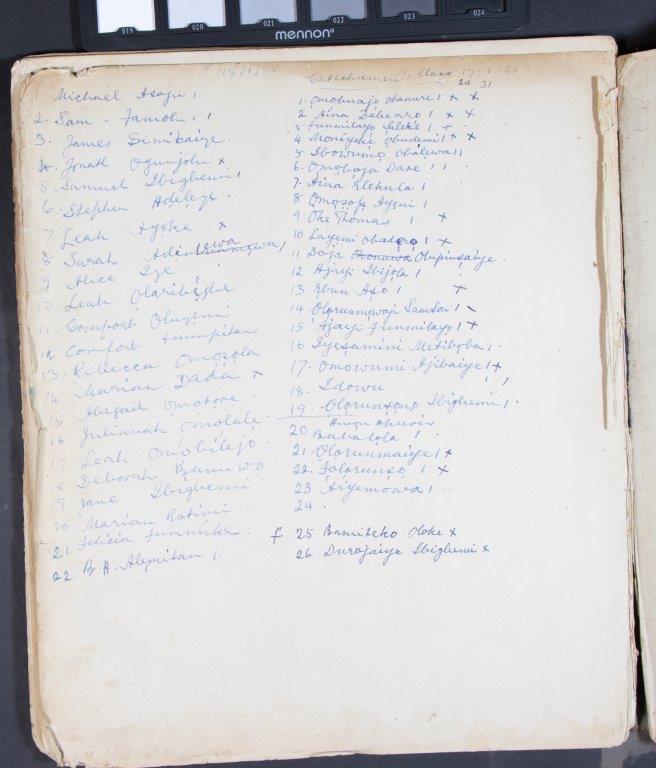 019 020 021 022 023 024
mennon
Michael Asaju 1
2. Sam - Famolu 1 1
3. James Simikaiye
4. Jonath Ogunjolu x
5 Samuel Ibigbemi 1
6. Stephen Adeleye
7 Leah Ayoka x
8 Sarah
9 Alice Ige
10 Leah Olaribigbe
11 Comfort Olugbemi
12 Comfort Funmipitan
13. Rebecca Omosola
14 Marian Dada x
15 Abigail Omotore
16 Julianah Omolale
17 Leah Omobilejo
18 Deborah Bamiwo
19 Jane Ibigbemi
20 Marian Rotimi
21 Felicia Funmike
22. B. A. Alemitan 1.
Catechumen's Class 17-1-35
24 31
1. Omobuajo Obanure 1 x x
2 Aina Debenro 1 x x
3. Funmilayo Saleke 1 x
4 Moniyne Obademi 1 x x
5 Ibowunmo Obalewa 1 1
6. Omoboja Dare 1 1
7. Aina Elekula 1
8 Omosofe Ayeni 1
9 Oke Thomas 1 x
10 Layemi 1 x
11 Daja Olupinsaiye
12 Ajuji Ibijola 1
13. Ebun Aso 1 x
14 Olorunmowaju Samson 1
15 Ajayi Funmilayo 1 x
16 Iyesamini Metiboba 1.
17. Omowumi Ajibaiye 1 x
18. Idowu 1 1
19. Olorunsomo Ibigbemi 1
Awon Okunrin
20 Babalola 1
21 Olorunmaiye 1 x
22. Folorunso 1 x
23 Aiyemowa 1
24.
f 25 Bamiteko Oloke x
26 Durojaiye Ibigbemi x